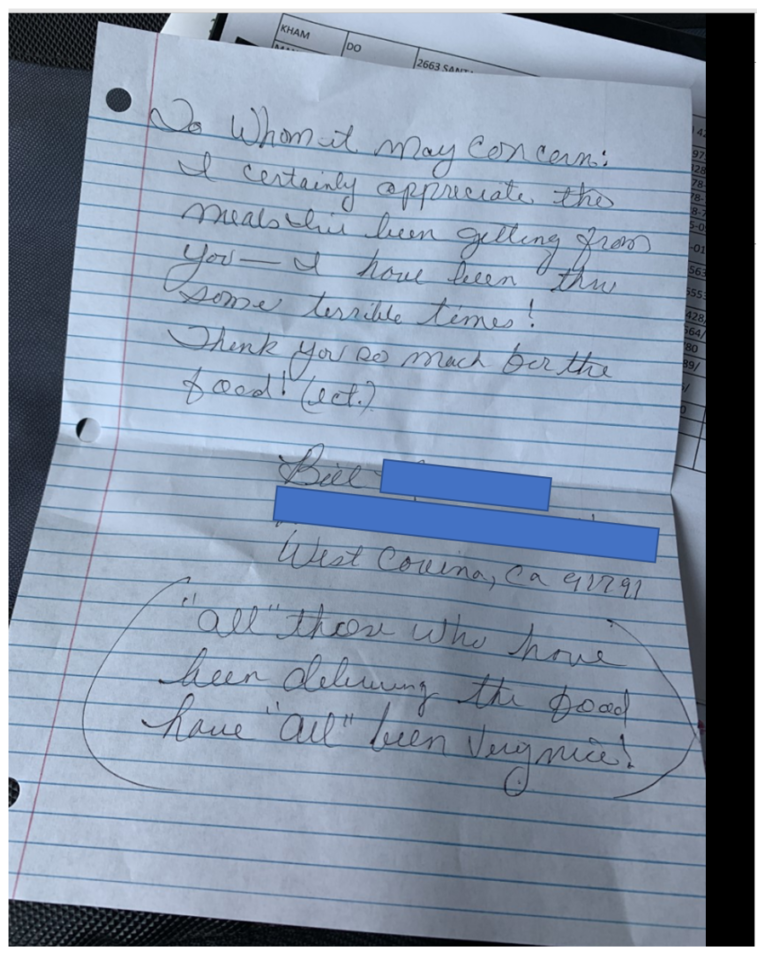 KHAM DO 2663 SANT
To Whom it May Concern:
I certainly appreciate the
meals I've been getting from
you — I have been thru
some terrible times!
Thank you so much for the
food! (ect.)
Bill
West Covina, Ca 91791
"all" those who have
been delivering the food
have "all" been very nice!